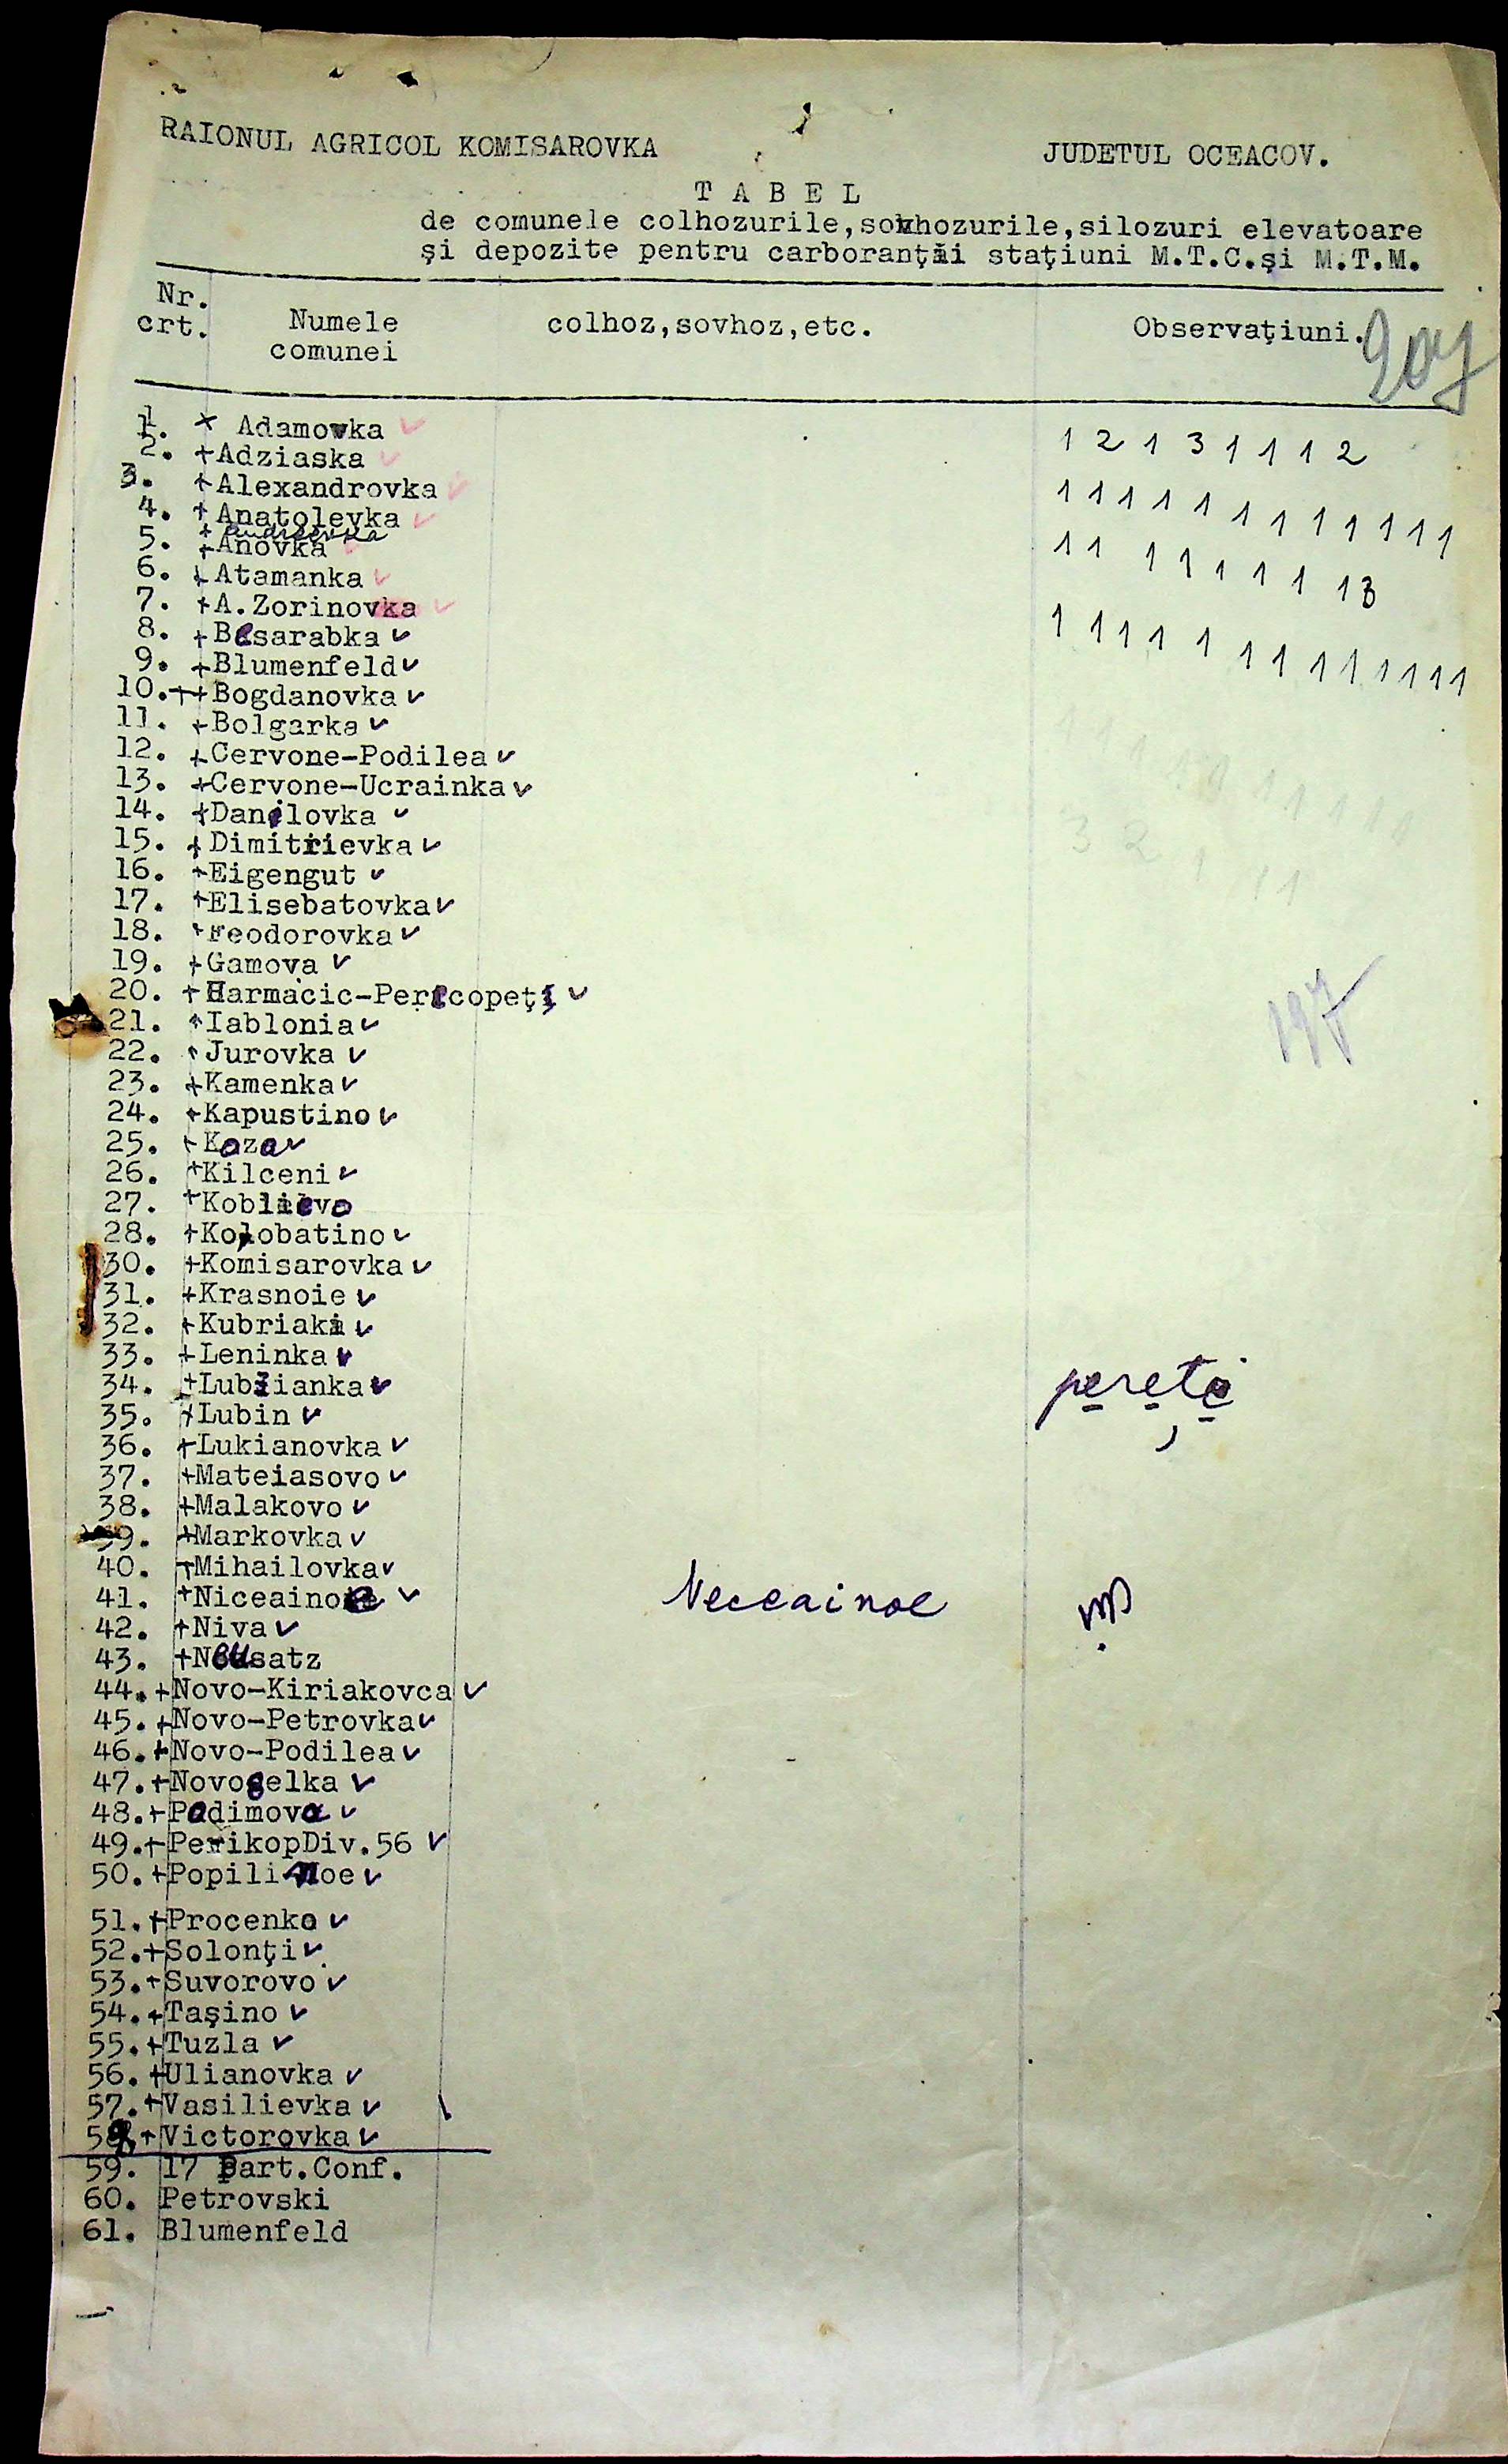 RAIONUL AGRICOL KOMISAROVKA
JUDETUL OCEACOV.
T A B E L
de comunele colhozurile,sovhozurile,silozuri elevatoare
şi depozite pentru carboranţi staţiuni M.T.C.şi M.T.M.
Nr. crt.
Numele comunei
colhoz,sovhoz,etc.
Observaţiuni.
207
1. Adamovka
1 2 1 3 1 1 1 2
2. +Adziaska
3. +Alexandrovka
1 1 1 1 1 1 1 1 1 1 1 1
4. +Anatolevka
+ Andreevka
5. +Anovka
1 1 1 1 1 1 1 13
6. +Atamanka
7. +A.Zorinovka
8. +Besarabka
1 1 1 1 1 1 1 1 1 1 1 1
9. +Blumenfeld
10.++Bogdanovka
11. +Bolgarka
12. +Cervone-Podilea
13. +Cervone-Ucrainka
14. +Danilovka
15. +Dimitrievka
3 2 1 1 1
16. +Eigengut
17. +Elisebatovka
18. +Feodorovka
19. +Gamova
20. +Harmacic-Pericopeţi
21. +Iablonia
197
22. +Jurovka
23. +Kamenka
24. +Kapustino
25. +Koza
26. +Kilceni
27. +Koblevo
28. +Kolobatino
30. +Komisarovka
31. +Krasnoie
32. +Kubriaki
33. +Leninka
34. +Lubianka
pereţi
35. +Lubin
36. +Lukianovka
37. +Mateiasovo
38. +Malakovo
39. +Markovka
40. +Mihailovka
41. +Niceainoe
Neceainoe
42. +Niva
43. +Neusatz
44.+Novo-Kiriakovca
45.+Novo-Petrovka
46.+Novo-Podilea
47.+Novoselka
48.+Padimova
49.+PerikopDiv.56
50.+Popilinoe
51.+Procenko
52.+Solonţi
53.+Suvorovo
54.+Taşino
55.+Tuzla
56.+Ulianovka
57.+Vasilievka
58.+Victorovka
59. 17 Part.Conf.
60. Petrovski
61. Blumenfeld